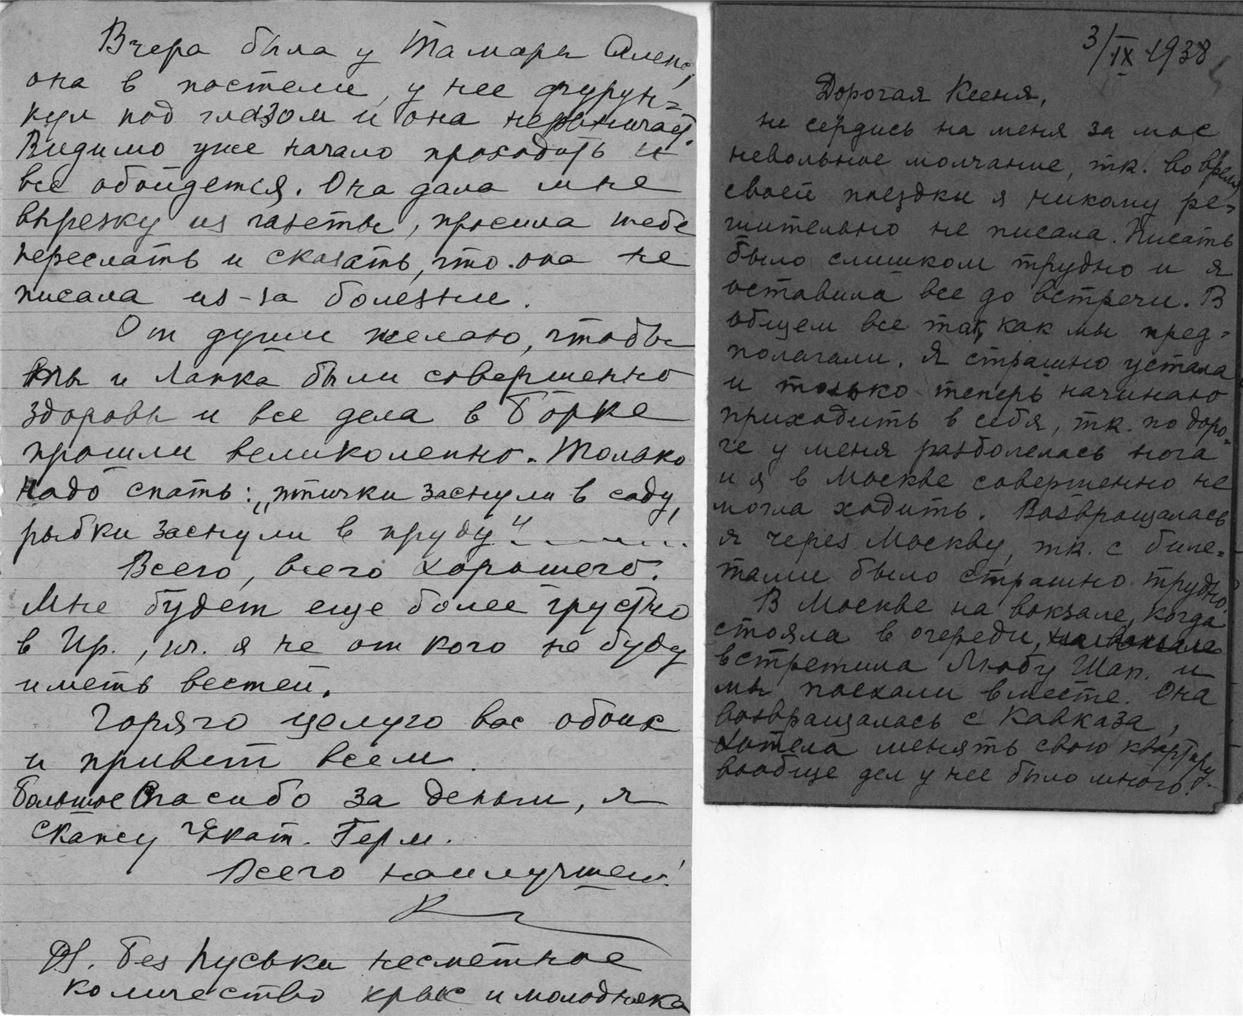 Вчера была у Тамары Алекс,
она в постели, у нее фурун=
кул под глазом и она не
Видимо уже начало проходить и
все обойдется. Она дала мне
вырезку из газеты, просила тебе
переслать и сказать, что она не
писала из-за болезни.
От души желаю, чтобы
ты и Лапка были совершенно
здоровы и все дела в Борке
прошли великолепно. Только
надо спать: „птички заснули в саду,
рыбки заснули в пруду"
Всего, всего хорошего.
Мне будет еще более грустно
в Ир., я не от кого не буду
иметь вестей.
Горячо целую вас обоих
и привет всем.
Большое спасибо за деньги, я
скажу Екат. Герм.
Всего наилучшего!
PS. Без Пуська несметное
количество крыс и молодняка
3/IX 1938
Дорогая Ксеня,
не сердись на меня за мое
невольное молчание, тк. во время
своей поездки я никому ре=
шительно не писала. Писать
было слишком трудно и я
оставила все до встречи. В
общем все так, как мы пред=
полагали. Я страшно устала
и только теперь начинаю
приходить в себя, тк. по доро-
ге у меня разболелась нога
и я в Москве совершенно не
могла ходить. Возвращалась
я через Москву, тк. с биле=
тами было страшно трудно.
В Москве на вокзале, когда
стояла в очереди,
встретила Любу Шап. и
мы поехали вместе. Она
возвращалась с Кавказа,
хотела менять свою квартиру.
вообще дел у нее было много.